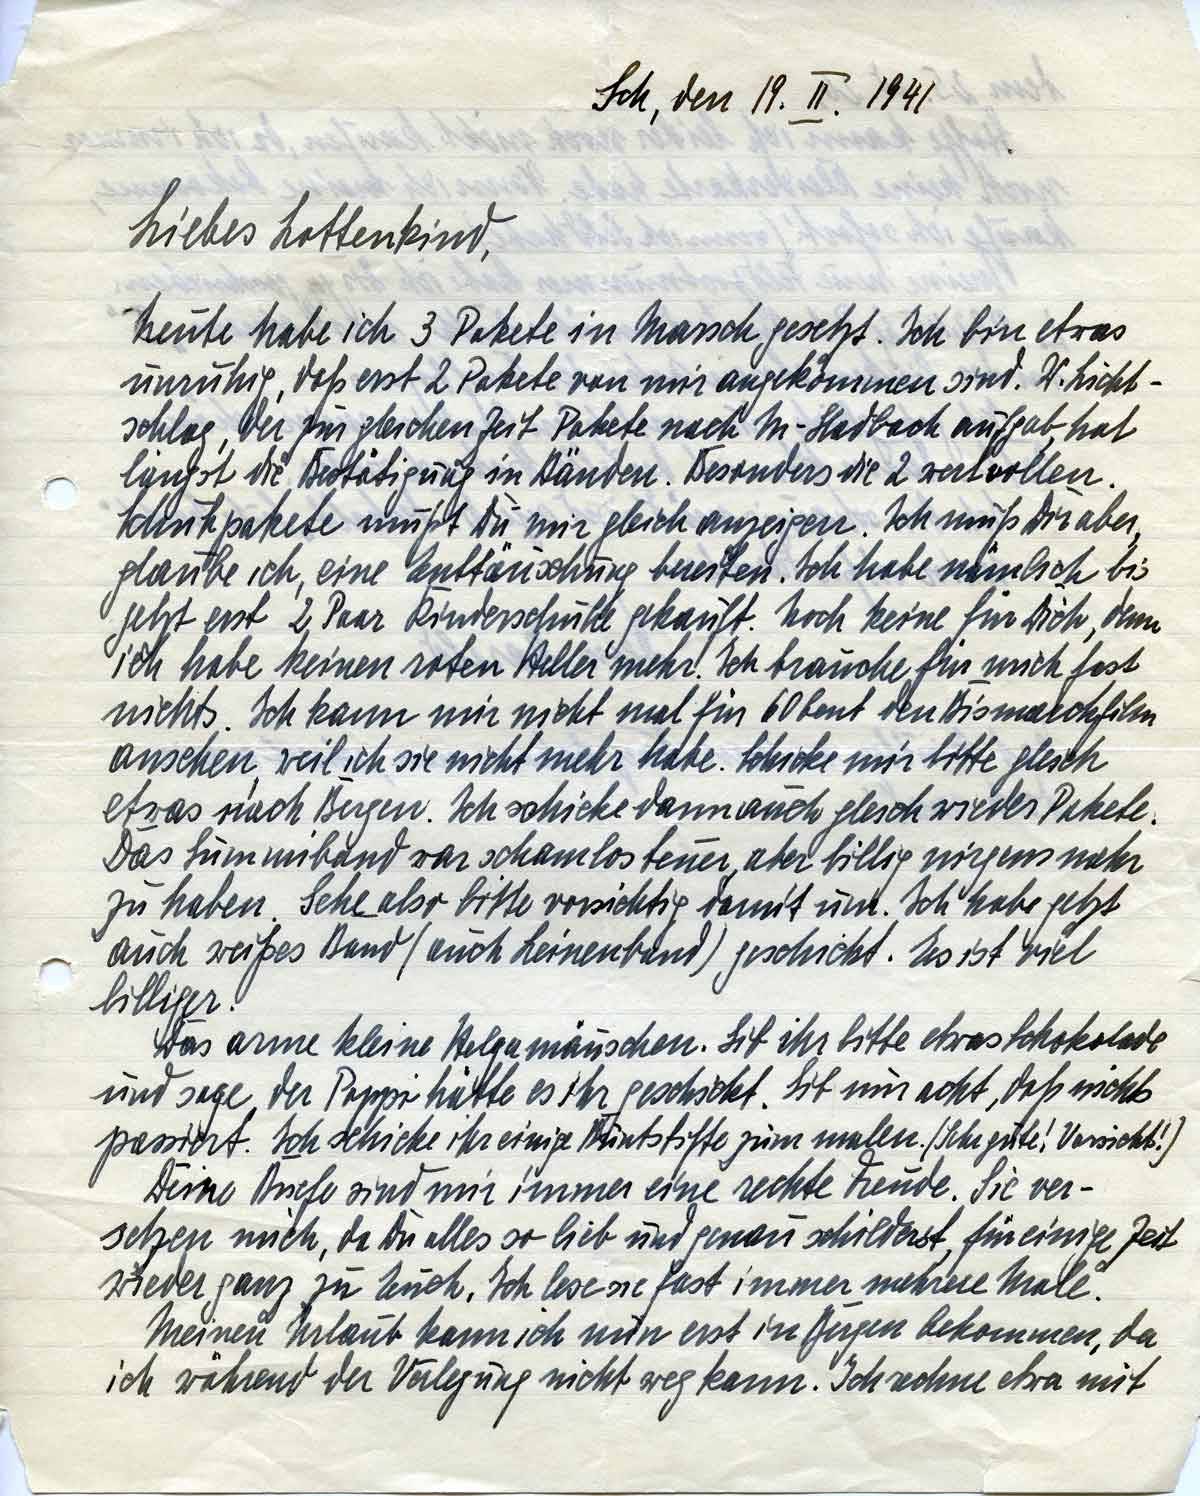 Sch, den 19. II. 1941
Liebes Lottenkind,
Heute habe ich 3 Pakete in Marsch gesetzt. Ich bin etwas
unruhig, daß erst 2 Pakete von mir angekommen sind. W. Licht-
schlag, der zur gleichen Zeit Pakete nach M-Gladbach aufgab, hat
längst die Bestätigung in Händen. Besonders die 2 wertvollen
Schuhpakete mußt Du mir gleich anzeigen. Ich muß Dir aber,
glaube ich, eine Enttäuschung bereiten. Ich habe nämlich bis
jetzt erst 2 Paar Kinderschuhe gekauft. Noch keine für Dich, denn
ich habe keinen roten Heller mehr. Ich brauche für mich fast
nichts. Ich kann mir nicht mal für 60 Cent den Bismarckfilm
ansehen, weil ich sie nicht mehr habe. Schicke mir bitte gleich
etwas nach Bergen. Ich schicke dann auch gleich wieder Pakete.
Das Gummiband war schamlos teuer, aber billig nirgens mehr
zu haben. Gehe also bitte vorsichtig damit um. Ich habe jetzt
auch weißes Band (auch Leinenband) geschickt. Es ist viel
billiger.
Das arme kleine Helgamäuschen. Gib ihr bitte etwas Schokolade
und sage, der Pappi hätte es ihr geschickt. Gib nur acht, daß nichts
passiert. Ich schicke ihr einige Buntstifte zum malen. (Sehr gute! Vorsicht!)
Deine Briefe sind mir immer eine rechte Freude. Sie ver-
setzen mich, da Du alles so lieb und genau schilderst, für einige Zeit
wieder ganz zu Euch. Ich lese sie fast immer mehrere Male.
Meinen Urlaub kann ich nun erst in Bergen bekommen, da
ich während der Verlegung nicht weg kann. Ich rechne etwa mit